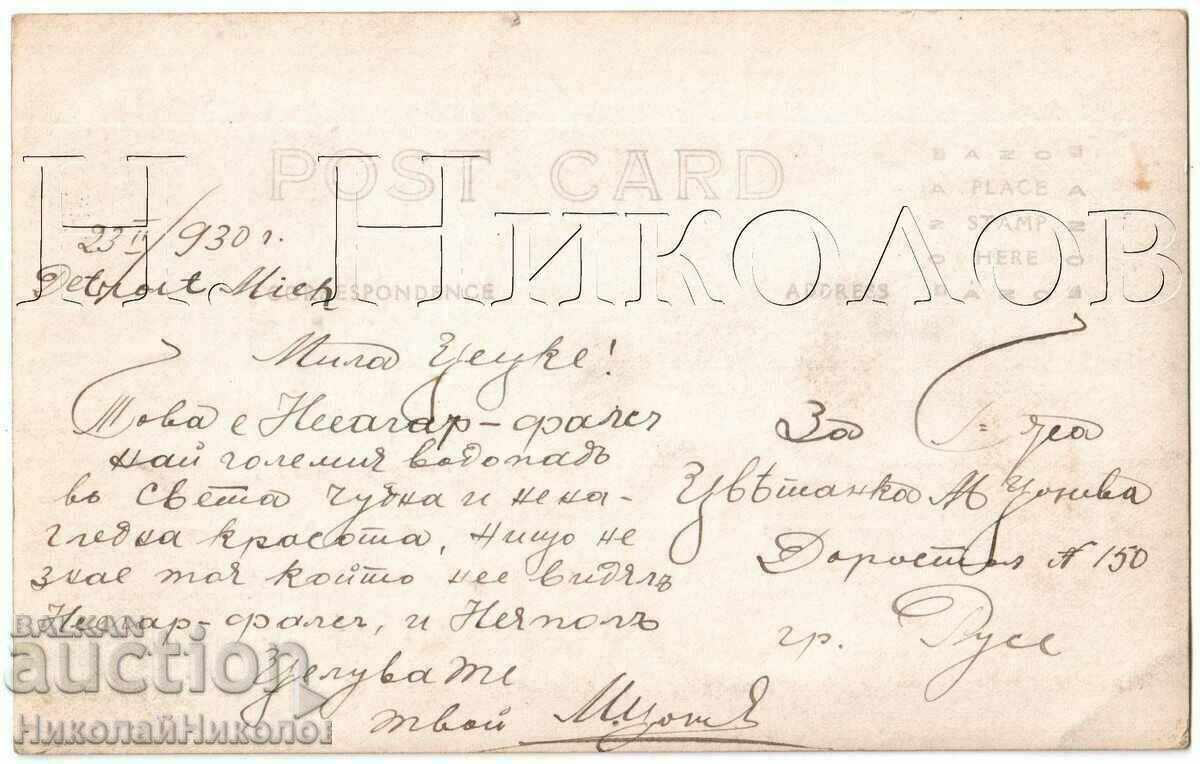 POST CARD
AZO
PLACE
STAMP
HERE
AZO
CORRESPONDENCE
ADDRESS
Н. Николов
23 II/930 г.
Detroit Mich
Мила Цецке!
Това е Ниагар-фалсъ
най големия водопадъ
въ света чудна и нена-
гледна красота, нищо не
знае тоя който нее видялъ
Ниагар-фалсъ, и Неяполъ
Целува те
твой М. Цонев
За Г-ца
Цвѣтанка М Цонева
Доростол N 150
гр. Русе
BALKAN
auction
НиколайНиколов